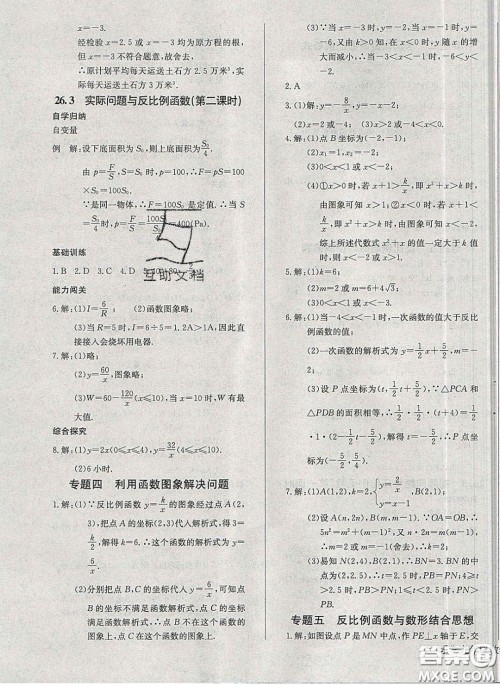 x=-3.
经检验 x=2.5 或 x=-3 均为原方程的根，
但 x=-3 不符合题意，故舍去.
∴原计划平均每天运送土石方 2.5 万米³，实
际每天运送土石方 3 万米³.
26.3 实际问题与反比例函数(第二课时)
自学归纳
自变量
例 解：设下底面积为 S₀，则上底面积为 S₀/4
由 p=F/S，F=100S₀，∴F=pS=100
×S₀.
∵是同一物体，∴F=100S₀是定值. ∴当 S=
S₀/4 时，p=F/S=100S₀/(S₀/4)=400(Pa).
基础训练
1. B 2. D 3. C 4. D
互助文档
能力闯关
6. 解：(1)I=6/R (2)函数图象略；
(3)当 R=5 时，I=6÷5=1.2A>1A，因此
直接接入会烧坏用电器.
7. 解：(1)图象略；
(2)y=60/x，图象略；
(3)W=60-120/x(x≤10)，当 x=10 时，W 有最
大值.
综合探究
8. 解：(1)y=2x(0≤x≤4)，y=32/x(4≤x≤10)；
(2)6 小时.
专题四 利用函数图象解决问题
1. 解：(1)∵反比例函数 y=k/x 的图象经过点 A(2,
3)，把点 A 的坐标(2,3)代入解析式，得 3=
k/2，解得 k=6，∴这个函数的解析式为 y=
6/x.
(2)分别把点 B,C 的坐标代入 y=6/x，可知点 B
的坐标不满足函数解析式，点 C 的坐标满足
函数解析式，∴点 B 不在这个函数的图象上，
点 C 在这个函数的图象上.
(3)∵当 x=-3 时，y=-2，当 x=-1 时，
y=-6，又由 k>0 知，在 x<0 时，y 随 x 的
增大而减小，∴当-3<x<-1 时，-6<y
<-2.
2. A
3. (1)解：y=-8/x，y=-x-2；
(2)x>2 或-4<x<0.
4. 解：(1)点 B 的坐标为(-2,-2)；
(2)x₁=1,x₂=-2；
(3)0<x<1 或 x<-2；
(4)①x>0 时，若 x+1>k/x，即 x²+x>k 时，
由图象可知 x>1，
②x<0 时，若 x+1<k/x，即 x²+x>k 时，由
图象可知 x<-2，
综上所述代数式 x²+x 的值一定大于 k 值
时，x>1 或 x<-2.
5. 解：(1)k=6；
(2)m=2 或 m=6+4√3.
6. 解：(1)当-4<x<-1 时，一次函数的值大于反
比例函数的值；
(2)一次函数的解析式为 y=1/2x+5/2，m=-
2；
(3)设 P 点坐标为(t,1/2t+5/2)，∵△PCA 和
△PDB 的面积相等，
7. 解：(1)A(1,2)，k=2，
(2)设 A(n,2n)，B(m,1/2m)，∵OA=OB，∴
(3)易知 N(2,2)，∴BN=3.BN 的中点对应
点为(2,2.5)，∴当 t=2.5 时，PB=PN；当 2
<t<2.5时，PB>PN；当 t>2.5 时，PB<PN.
专题五 反比例函数与数形结合思想
1. 解：如图设点 P 是 MN 中点，作 PE⊥x 轴于 E，交